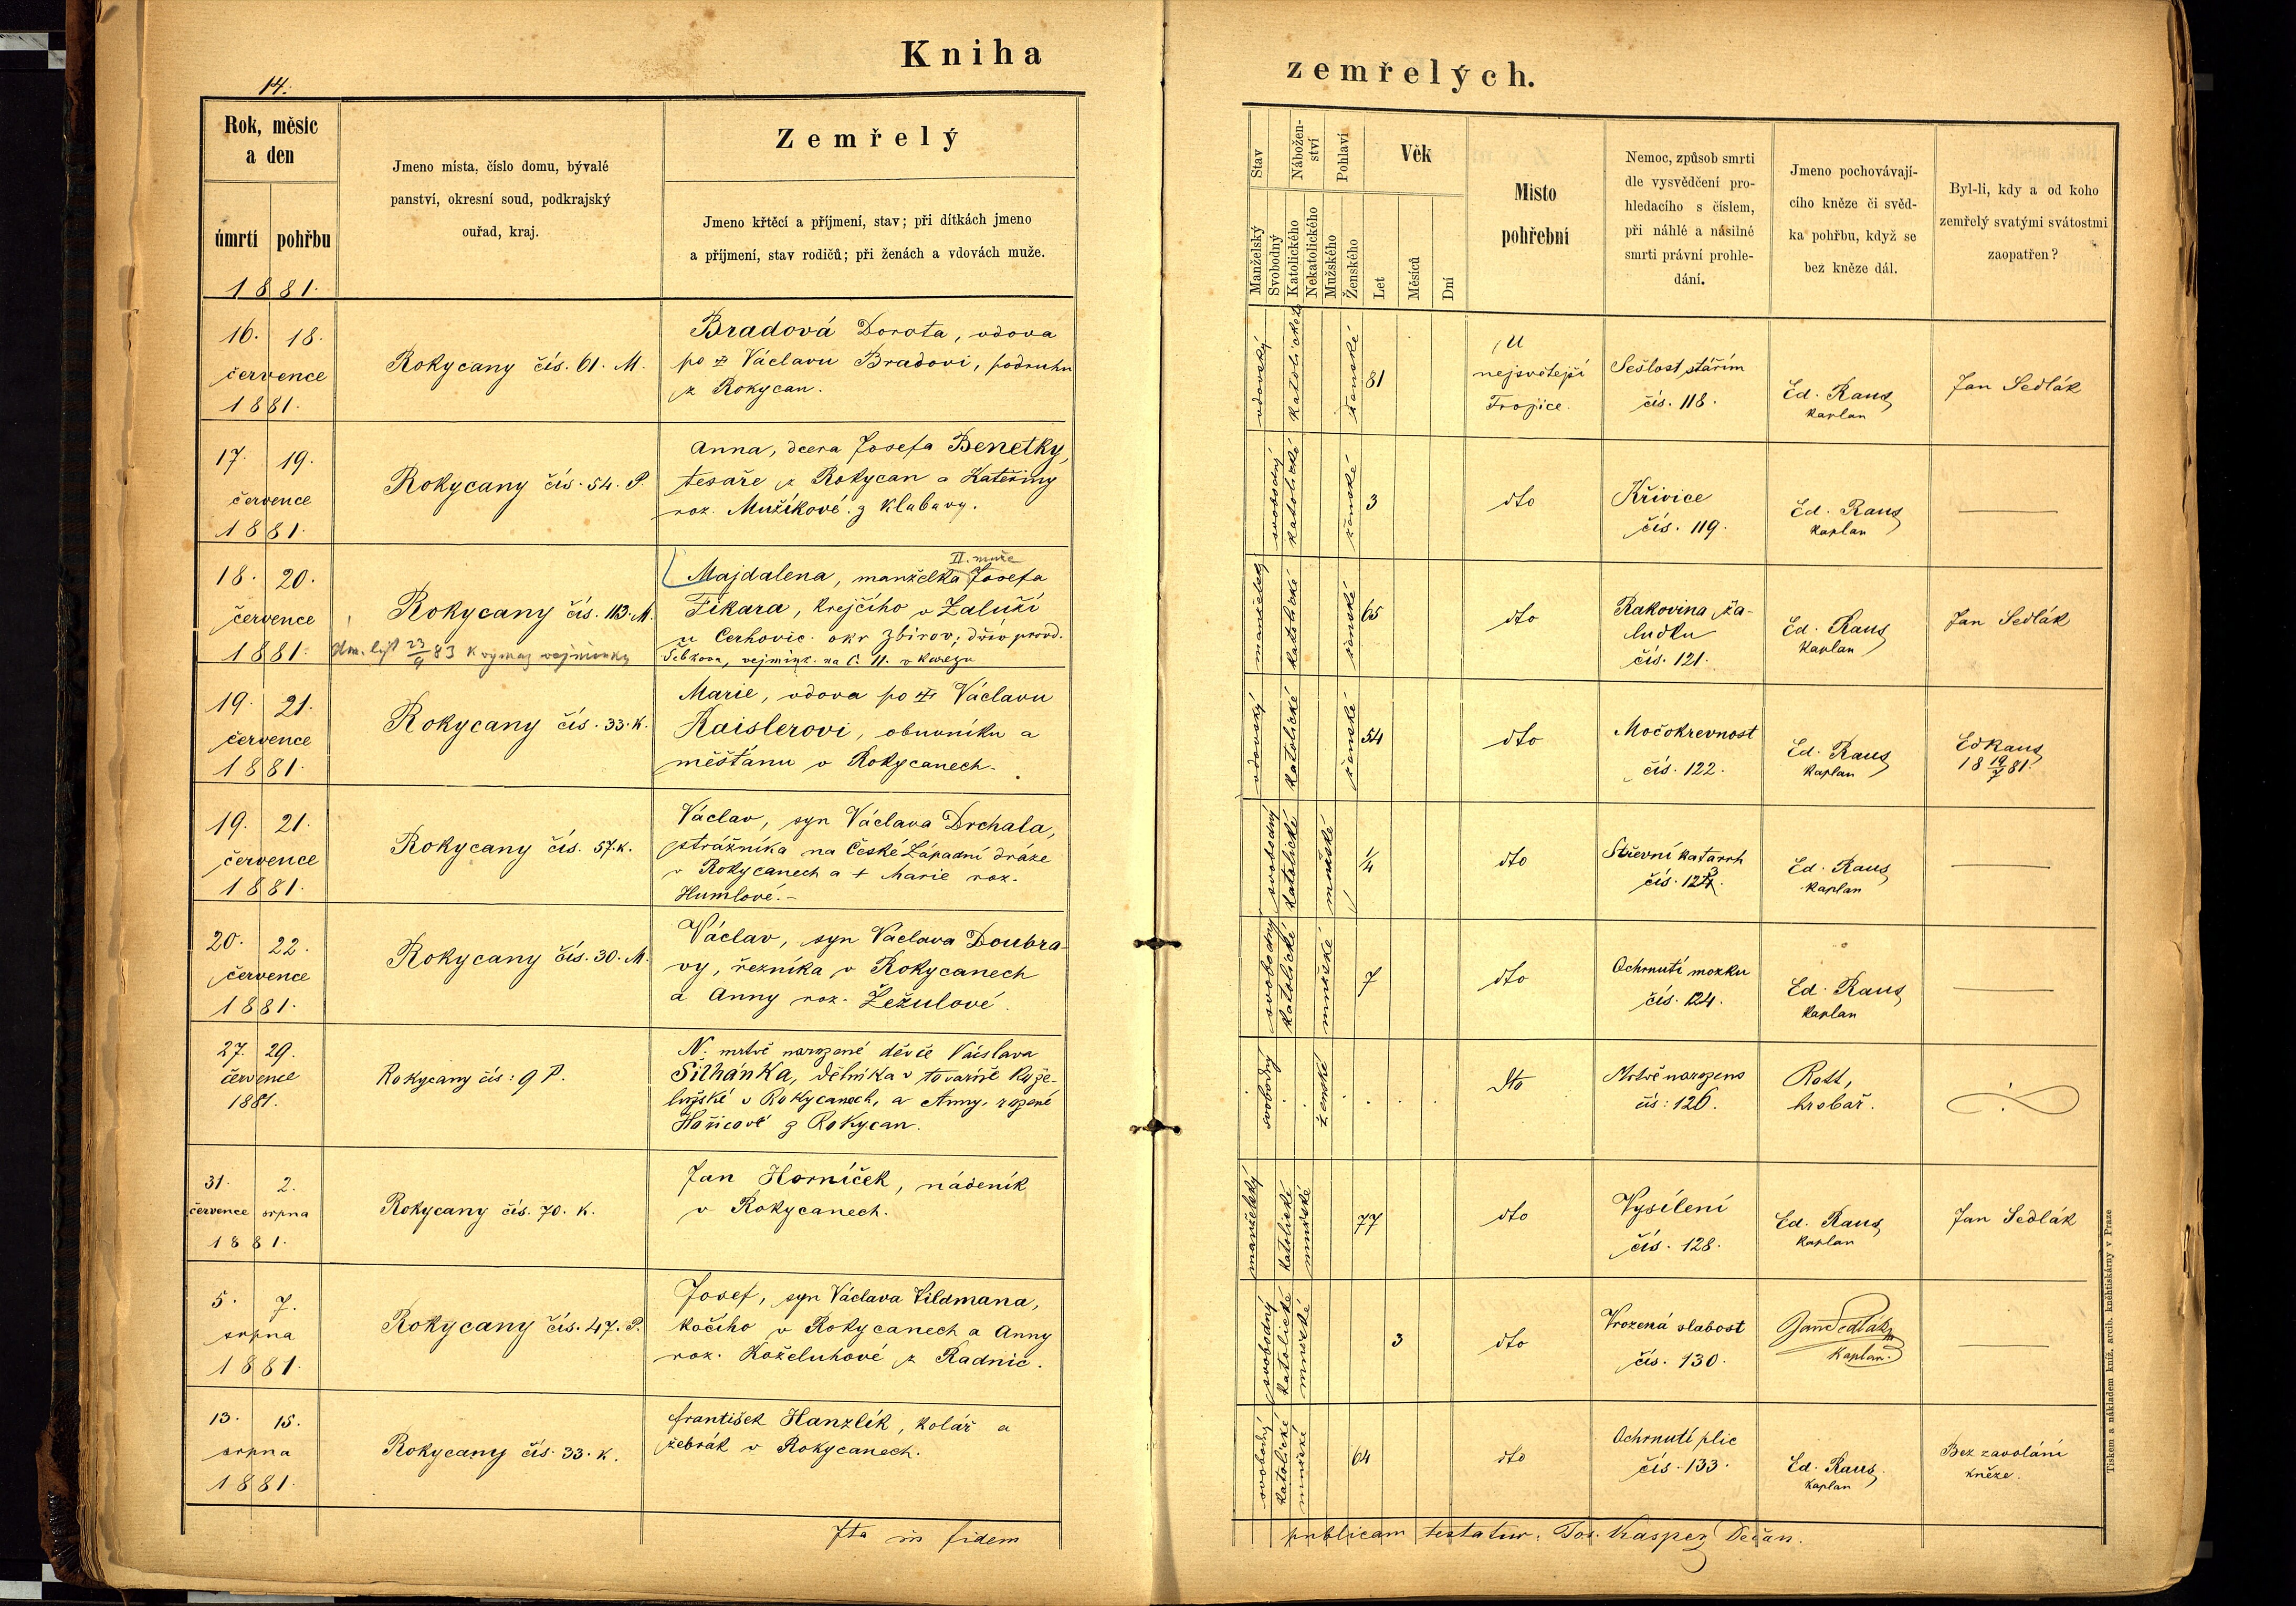 14.
Kniha
zemřelých.
Rok, měsic
a den
úmrtí
pohřbu
1881.
Jmeno místa, číslo domu, bývalé
panství, okresní soud, podkrajský
ouřad, kraj.
Zemřelý
Jmeno křtěcí a příjmení, stav; při dítkách jmeno
a příjmení, stav rodičů; při ženách a vdovách muže.
Stav
Manželský
Svobodný
Nábožen-
ství
Katolického
Nekatolického
Pohlaví
Mužského
Ženského
Věk
Let
Měsíců
Dní
Místo
pohřební
Nemoc, způsob smrti
dle vysvědčení pro-
hledacího s číslem,
při náhlé a násilné
smrti právní prohle-
dání.
Jmeno pochovávají-
cího kněze či svěd-
ka pohřbu, když se
bez kněze dál.
Byl-li, kdy a od koho
zemřelý svatými svátostmi
zaopatřen?
16. 18.
července
1881.
Rokycany čís. 61. M.
Bradová Dorota, vdova
po † Václavu Bradovi, podruhu
z Rokycan.
vdovský
katolické
ženské
81
U
nejsvětější
Trojice.
Sešlost stářím
čís. 118.
Ed. Raus
kaplan
Jan Sedlák
17. 19.
července
1881.
Rokycany čís. 54. P.
Anna, dcera Josefa Benetky,
tesaře z Rokycan a Kateřiny
roz. Mužíkové z Klabavy.
svobodný
katolické
ženské
3
dto
Křivice
čís. 119.
Ed. Raus
kaplan
18. 20.
července
1881.
Rokycany čís. 113. M.
23/9 83 k
II. muže
Majdalena, manželka Josefa
Fikara, krejčího v Zaluží
u Cerhovic okr Zbirov; dřív provd.
Šebkova, vejmink. na č. 11. v Kařezu
manželský
katolické
ženské
65
dto
Rakovina ža-
ludku
čís. 121.
Ed. Raus
kaplan
Jan Sedlák
19. 21.
července
1881.
Rokycany čís. 33. K.
Marie, vdova po † Václavu
Kaislerovi, obuvníku a
měšťanu v Rokycanech.
vdovský
katolické
ženské
54
dto
Močokrevnost
čís. 122.
Ed. Raus
kaplan
Ed Raus
18 19/7 81.
19. 21.
července
1881.
Rokycany čís. 57. K.
Václav, syn Václava Drchala,
strážníka na České Západní dráze
v Rokycanech a † Marie roz.
Humlové.-
svobodný
katolické
mužské
1/4
dto
Střevní katarrh
čís. 123.
Ed. Raus
kaplan
20. 22.
července
1881.
Rokycany čís. 30. M.
Václav, syn Václava Doubra-
vy, řezníka v Rokycanech
a Anny roz. Žežulové.
svobodný
katolické
mužské
7
dto
Ochrnutí mozku
čís. 124.
Ed. Raus
kaplan
27. 29.
července
1881.
Rokycany čís: 9 P.
N. mrtvě narozené děvče Václava
Šilhánka, dělníka v továrně kože-
lužské v Rokycanech, a Anny, rozené
Hořicové z Rokycan.
svobodný
ženské
dto
Mrtvě narozeno
čís: 126.
Rott,
hrobař.
31. 2.
července srpna
1881.
Rokycany čís. 70. K.
Jan Horníček, nádeník
v Rokycanech.
manželský
katolické
mužské
77
dto
Vysílení
čís. 128.
Ed. Raus
kaplan
Jan Sedlák
5. 7.
srpna
1881.
Rokycany čís. 47. P.
Josef, syn Václava Vildmana,
kočího v Rokycanech a Anny
roz. Koželuhové z Radnic.
svobodný
katolické
mužské
3
dto
Vrozená slabost
čís. 130.
Jan Sedlák
kaplan.
13. 15.
srpna
1881.
Rokycany čís. 33. K.
František Hanzlík, kolář a
žebrák v Rokycanech.
svobodný
katolické
mužské
64
dto
Ochrnutí plic
čís. 133.
Ed. Raus
kaplan
Bez zavolání
kněze.
Ita in fidem
publicam testatur: Jos. Kasper, Děčan.
Tiskem a nákladem kníž. arcib. knehtiskárny v Praze